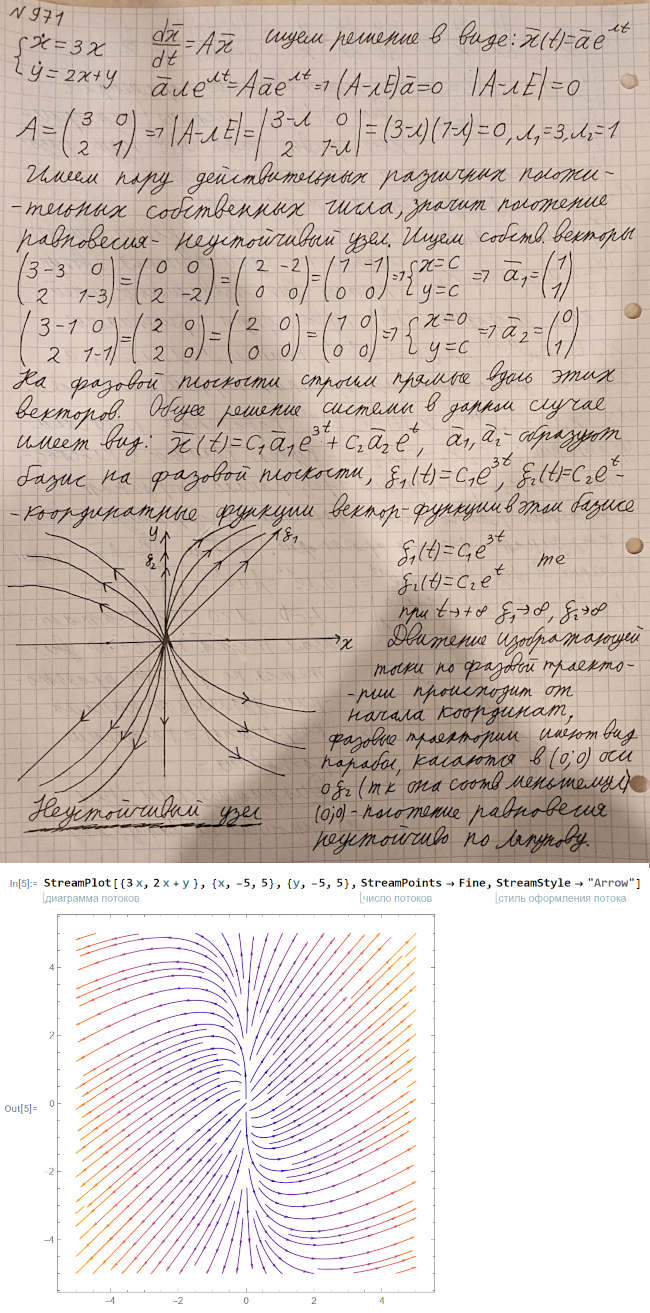 N 971
{ẋ = 3x
ẏ = 2x+y dx̄/dt = Ax̄ ищем решение в виде: x̄(t) = āe^λt
āλe^λt = Aāe^λt => (A-λE)ā = 0 |A-λE| = 0
A = (3 0; 2 1) => |A-λE| = |3-λ 0; 2 1-λ| = (3-λ)(1-λ) = 0, λ₁=3, λ₂=1
Имеем пару действительных различных положи-
-тельных собственных числа, значит положение
равновесия - неустойчивый узел. Ищем собств. векторы
(3-3 0; 2 1-3) = (0 0; 2 -2) = (2 -2; 0 0) = (1 -1; 0 0) => {x=c; y=c => ā₁ = (1; 1)
(3-1 0; 2 1-1) = (2 0; 2 0) = (2 0; 0 0) = (1 0; 0 0) => {x=0; y=c => ā₂ = (0; 1)
На фазовой плоскости строим прямые вдоль этих
векторов. Общее решение системы в данном случае
имеет вид: x̄(t) = C₁ā₁e^3t + C₂ā₂e^t, ā₁, ā₂ - образуют
базис на фазовой плоскости, ξ₁(t) = C₁e^3t, ξ₂(t) = C₂e^t -
- координатные функции вектор-функции в этом базисе
y
ξ₂
ξ₁
x
ξ₁(t) = C₁e^3t
ξ₂(t) = C₂e^t те
при t→+∞ ξ₁→∞, ξ₂→∞
Движение изображающей
точки по фазовой траекто-
-рии происходит от
начала координат,
фазовые траектории имеют вид
парабол, касаются в (0;0) оси
Oξ₂ (тк она соотв меньшему λ)
(0;0) - положение равновесия
неустойчиво по Ляпунову.
Неустойчивый узел
In[5]:= StreamPlot[{3 x, 2 x + y }, {x, -5, 5}, {y, -5, 5}, StreamPoints → Fine, StreamStyle → "Arrow"]
диаграмма потоков число потоков стиль оформления потока
Out[5]=
4
2
0
-2
-4
-4 -2 0 2 4